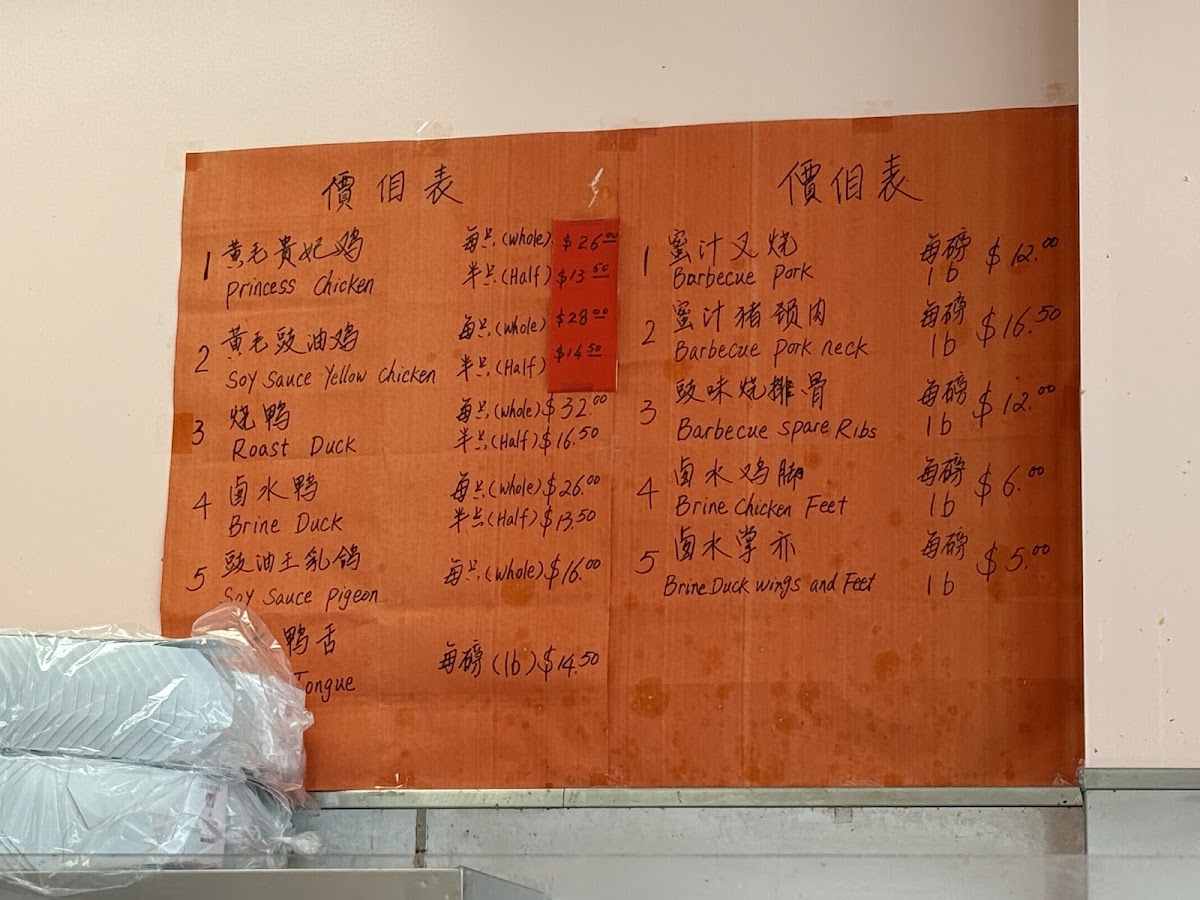 價佀表
1 黄毛貴妃鸡 每只(Whole) $26.00
Princess Chicken 半只(Half) $13.50
2 黄毛豉油鸡 每只(Whole) $28.00
Soy Sauce Yellow Chicken 半只(Half) $14.50
3 烧鸭 每只(Whole) $32.00
Roast Duck 半只(Half) $16.50
4 卤水鸭 每只(Whole) $26.00
Brine Duck 半只(Half) $13.50
5 豉油王乳鸽 每只(Whole) $16.00
Soy Sauce Pigeon
鸭舌 每磅(lb) $14.50
Tongue
價佀表
1 蜜汁叉烧 每磅 $12.00
Barbecue Pork lb
2 蜜汁猪颈肉 每磅 $16.50
Barbecue Pork neck lb
3 豉味烧排骨 每磅 $12.00
Barbecue Spare Ribs lb
4 卤水鸡脚 每磅 $6.00
Brine Chicken Feet lb
5 卤水掌亦 每磅 $5.00
Brine Duck wings and Feet lb